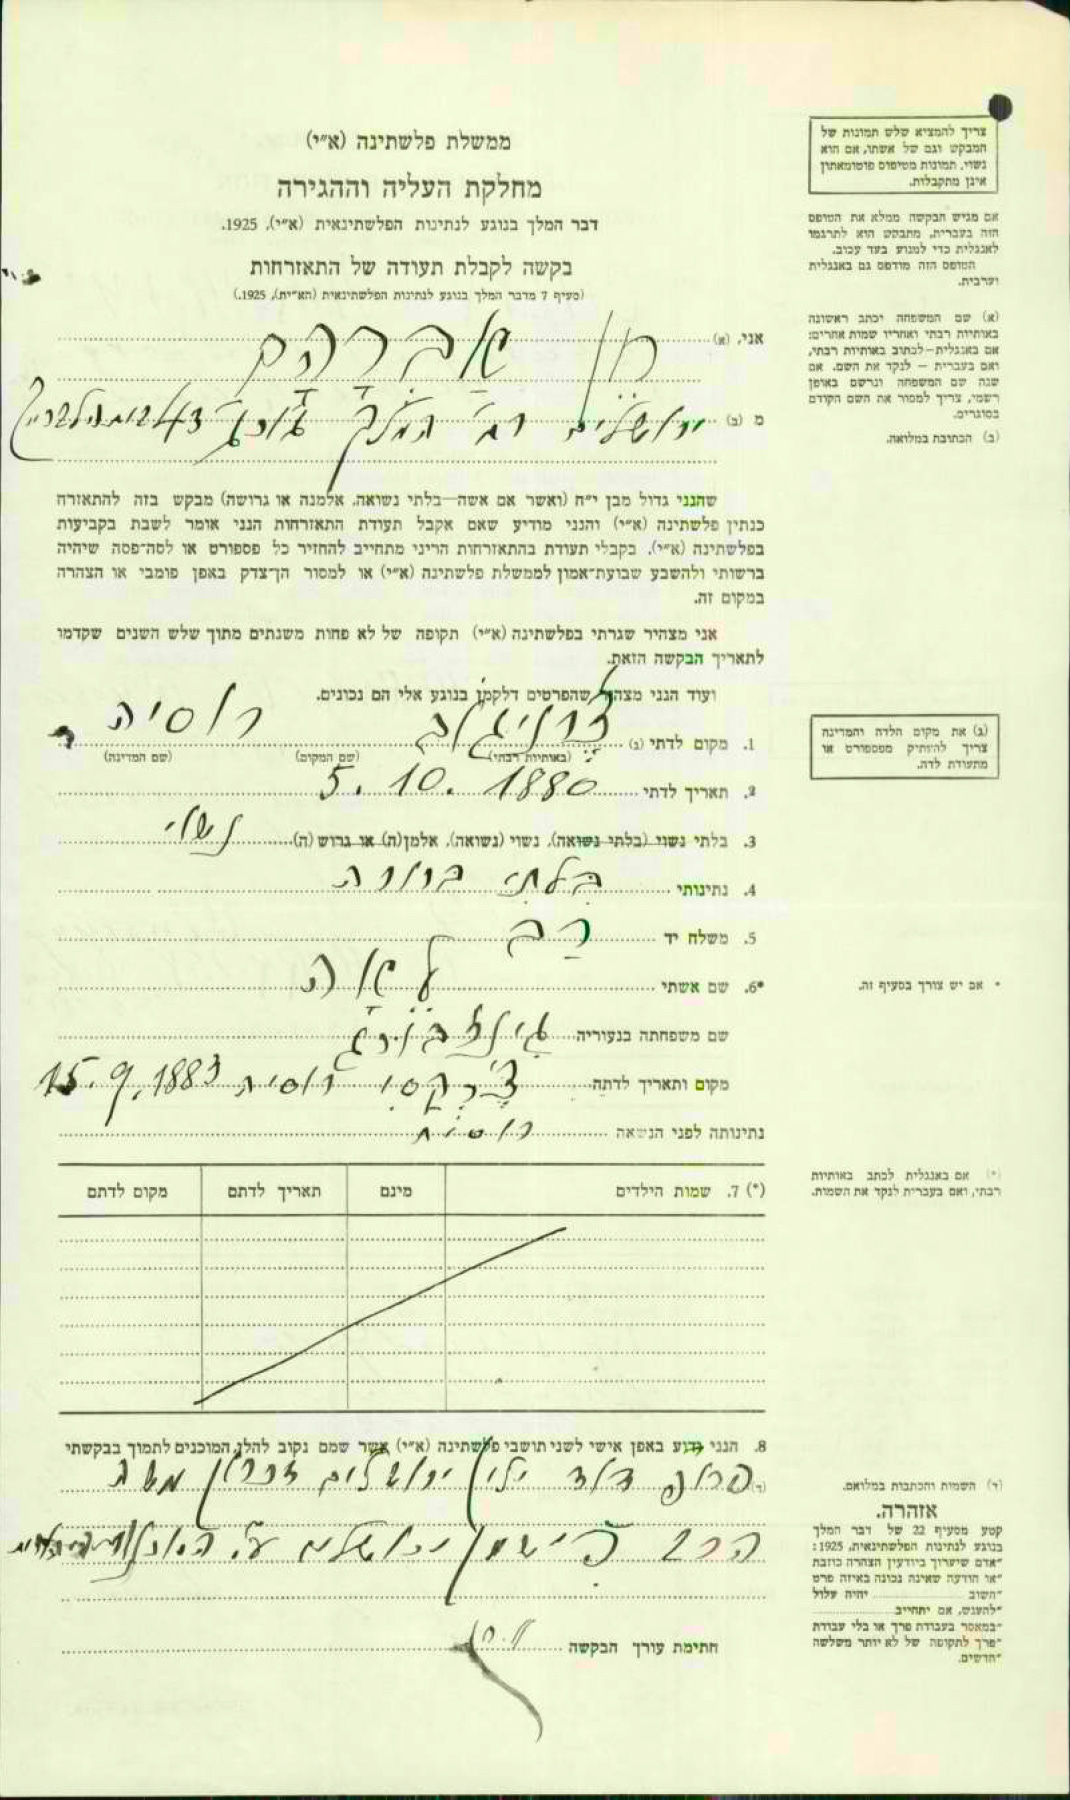 ממשלת פלשתינה (א״י)
מחלקת העליה וההגירה
דבר המלך בנוגע לנתינות הפלשתינאית (א״י), 1925.
בקשה לקבלת תעודה של התאזרחות
(סעיף 7 מדבר המלך בנוגע לנתינות הפלשתינאית (הא״ית), 1925.)
צריך להמציא שלש תמונות של
המבקש וגם של אשתו, אם הוא
נשוי. תמונות מטיפוס פוטומאטון
אינן מתקבלות.
אם מגיש הבקשה ממלא את הטופס
הזה בעברית, מתבקש הוא לתרגמו
לאנגלית כדי למנוע בעד עכוב.
הטופס הזה מודפס גם באנגלית
וערבית.
(א) שם המשפחה יכתב ראשונה
באותיות רבתי ואחריו שמות אחרים:
אם באנגלית—לכתוב באותיות רבתי,
ואם בעברית – לנקד את השם. אם
שנה שם המשפחה ונרשם באופן
רשמי, צריך למסור את השם הקודם
בסוגרים.
(ב) הכתובת במלואה.
אני, (א) חן אברהם
מ (ב) ירושלים רח׳ המלך ג׳ורג׳
שהנני גדול מבן י״ח (ואשר אם אשה—בלתי נשואה, אלמנה או גרושה) מבקש בזה להתאזרח
כנתין פלשתינה (א״י) והנני מודיע שאם אקבל תעודת התאזרחות הנני אומר לשבת בקביעות
בפלשתינה (א״י). בקבלי תעודת בהתאזרחות הריני מתחייב להחזיר כל פספורט או לסה־פסה שיהיה
ברשותי ולהשבע שבועת־אמון לממשלת פלשתינה (א״י) או למסור הן־צדק באפן פומבי או הצהרה
במקום זה.
אני מצהיר שגרתי בפלשתינה (א״י) תקופה של לא פחות משנתים מתוך שלש השנים שקדמו
לתאריך הבקשה הזאת.
ועוד הנני מצהיר שהפרטים דלקמן בנוגע אלי הם נכונים.
1. מקום לדתי (ג) צ׳רניגוב רוסיה
(באותיות רבתי) (שם המקום) (שם המדינה)
(ג) את מקום הלדה והמדינה
צריך להעתיק מפספורט או
מתעודת לדה.
2. תאריך לדתי 5. 10. 1880
3. בלתי נשוי (בלתי נשואה), נשוי (נשואה), אלמן(ה) או גרוש (ה) נשוי
4. נתינותי בלתי ברורה
5. משלח יד רב
*6. שם אשתי לאה
* אם יש צורך בסעיף זה.
שם משפחתה בנעוריה גינזבורג
מקום ותאריך לדתה צ׳רקסי רוסיה 15. 9. 1883
נתינותה לפני הנשואה רוסית
(*) 7. שמות הילדים מינם תאריך לדתם מקום לדתם
(*) אם באנגלית לכתב באותיות
רבתי, ואם בעברית לנקד את השמות.
8. הנני ידוע באפן אישי לשני תושבי פלשתינה (א״י) אשר שמם נקוב להלן המוכנים לתמוך בבקשתי
(ד) פרופ דוד ילין ירושלים זכרון משה
הרב פישמן ירושלים
(ד) השמות והכתבות במלואם.
אזהרה.
קטע מסעיף 22 של דבר המלך
בנוגע לנתינות הפלשתינאית, 1925:
״אדם שיערוך ביודעין הצהרה כוזבת
״או הודעה שאינה נכונה באיזה פרט
״חשוב יהיה עלול
״להענש, אם יתחייב
״במאסר בעבודת פרך או בלי עבודת
״פרך לתקופה של לא יותר משלשה
״חדשים.
חתימת עורך הבקשה